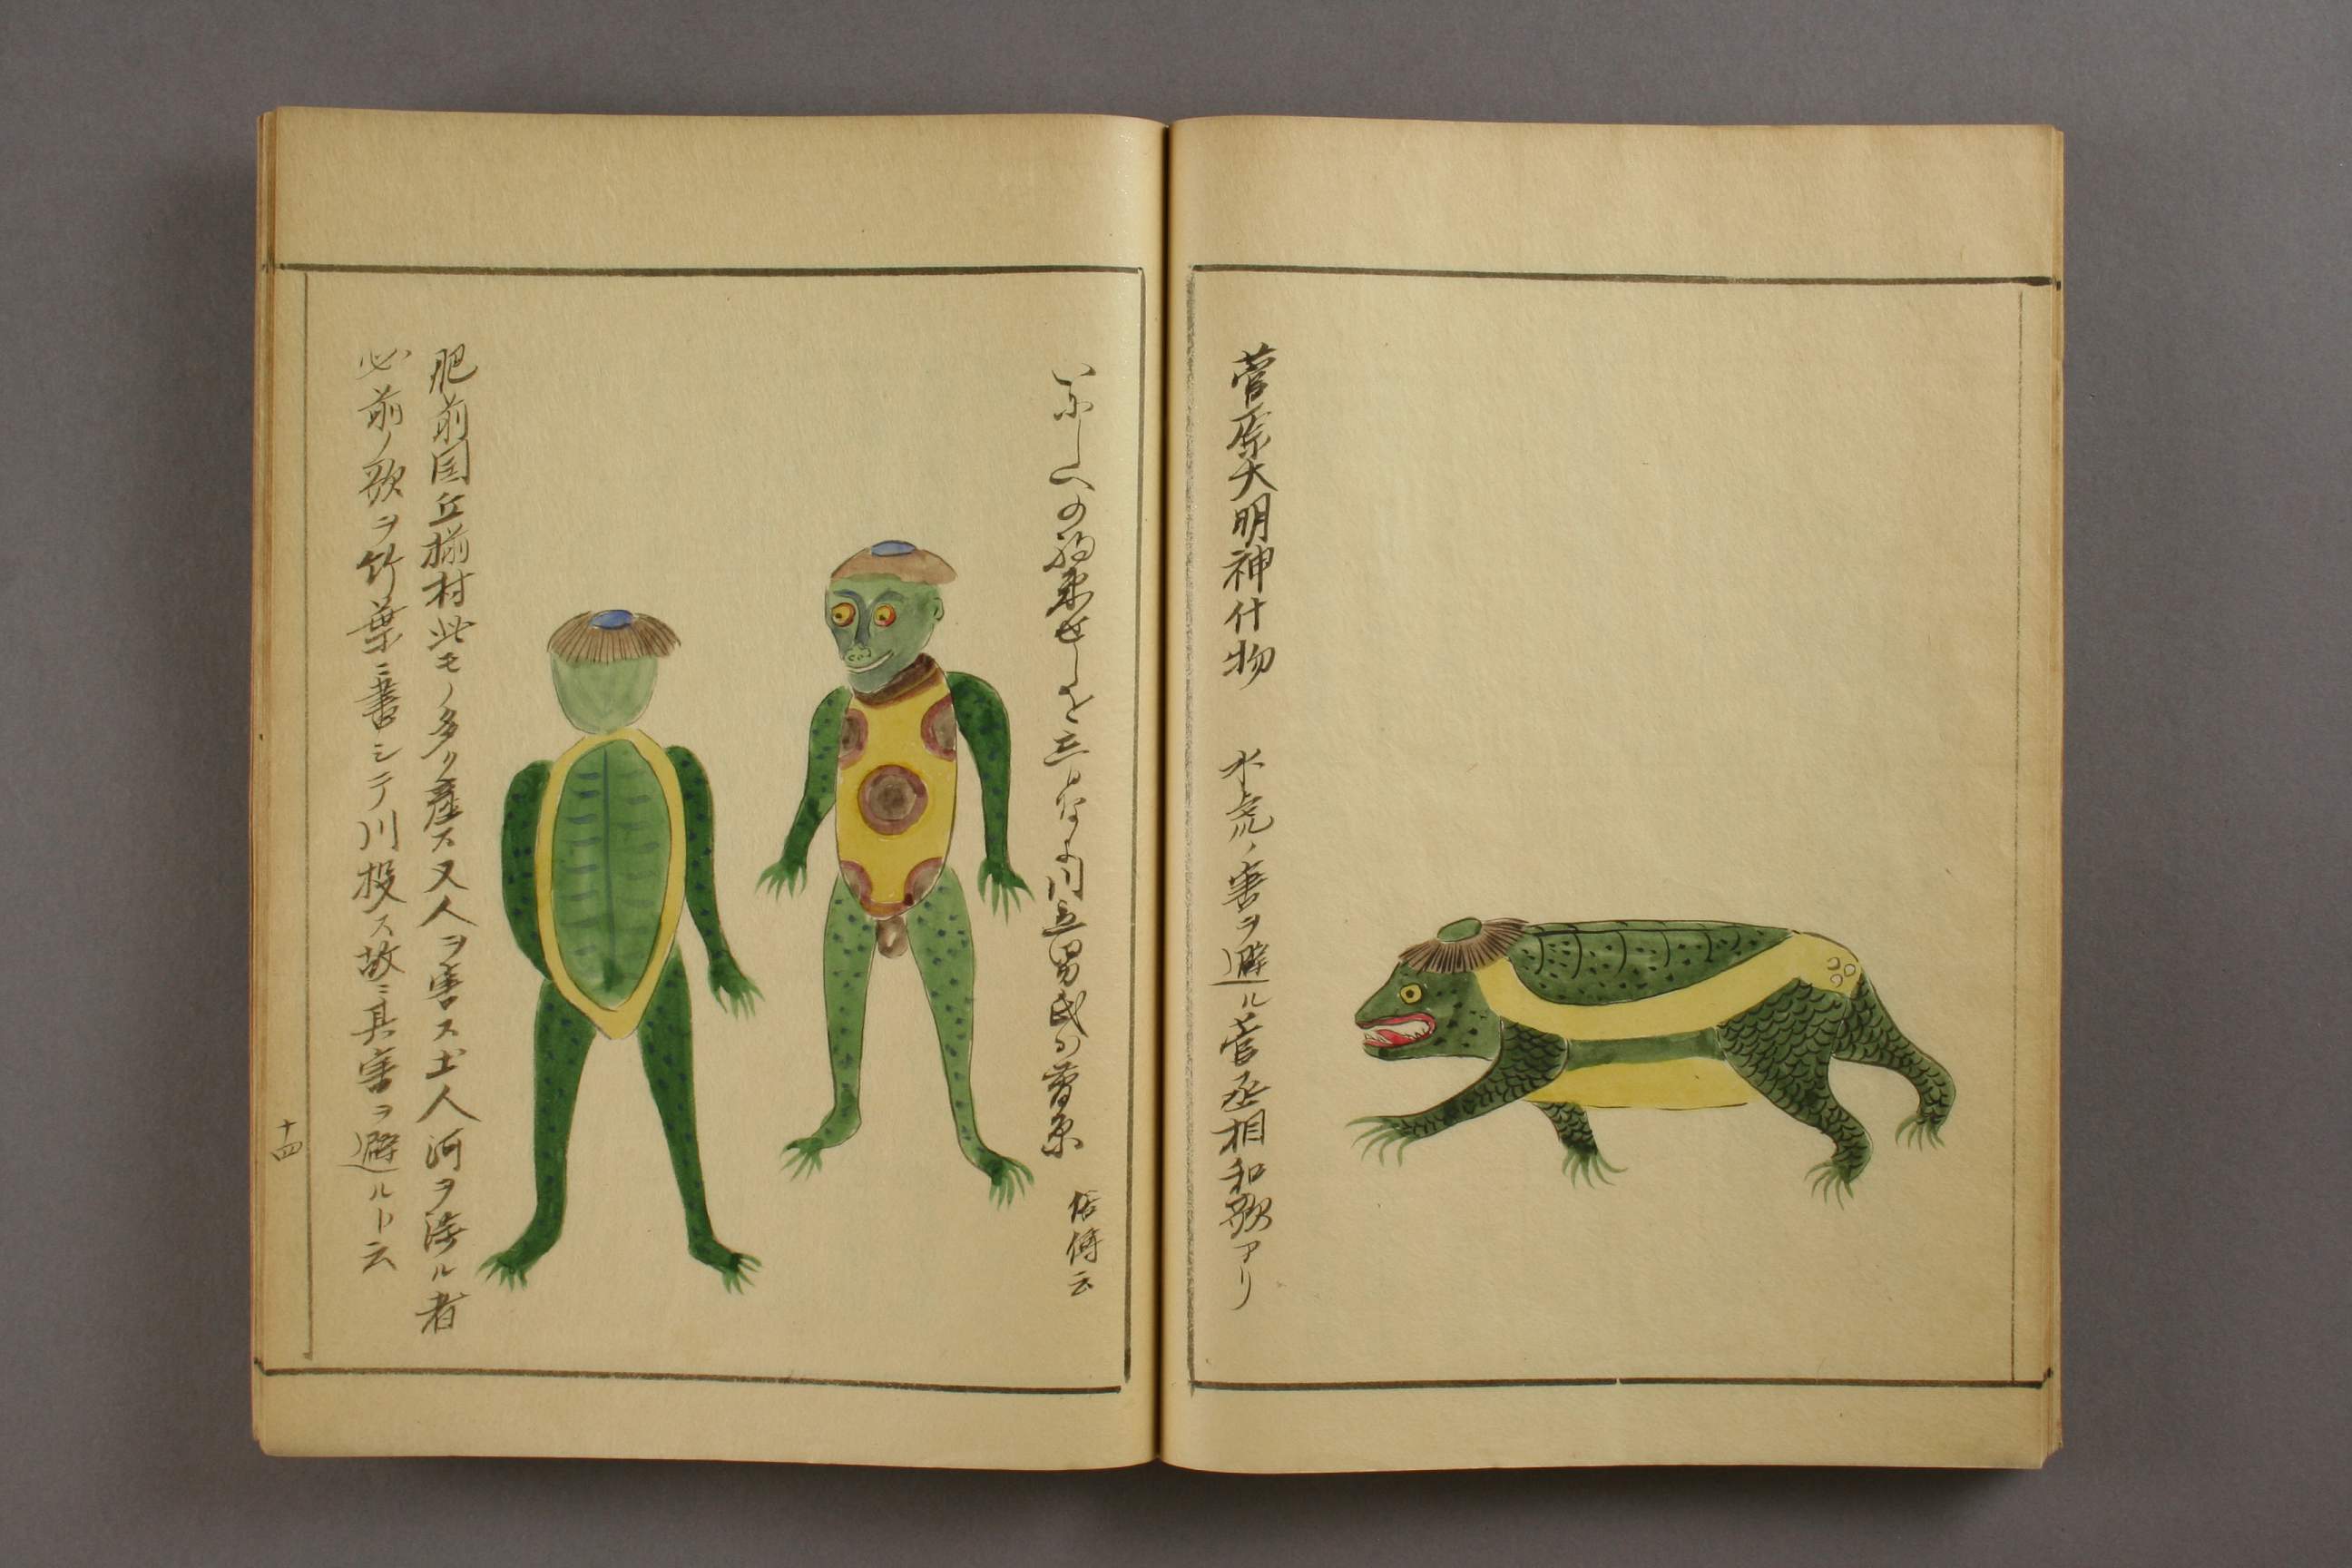 菅原大明神什物　水虎ノ害ヲ避ル菅丞相和歌アリ
いにしへの約束せしを忘るなよ川立男氏ハ菅原　俗傳云
肥前国丘楊村此モノ多ク産ス又人ヲ害ス土人河ヲ渉ル者
必前ノ歌ヲ竹葉ニ書シテ川投ス故ニ其害ヲ避ルト云
十四